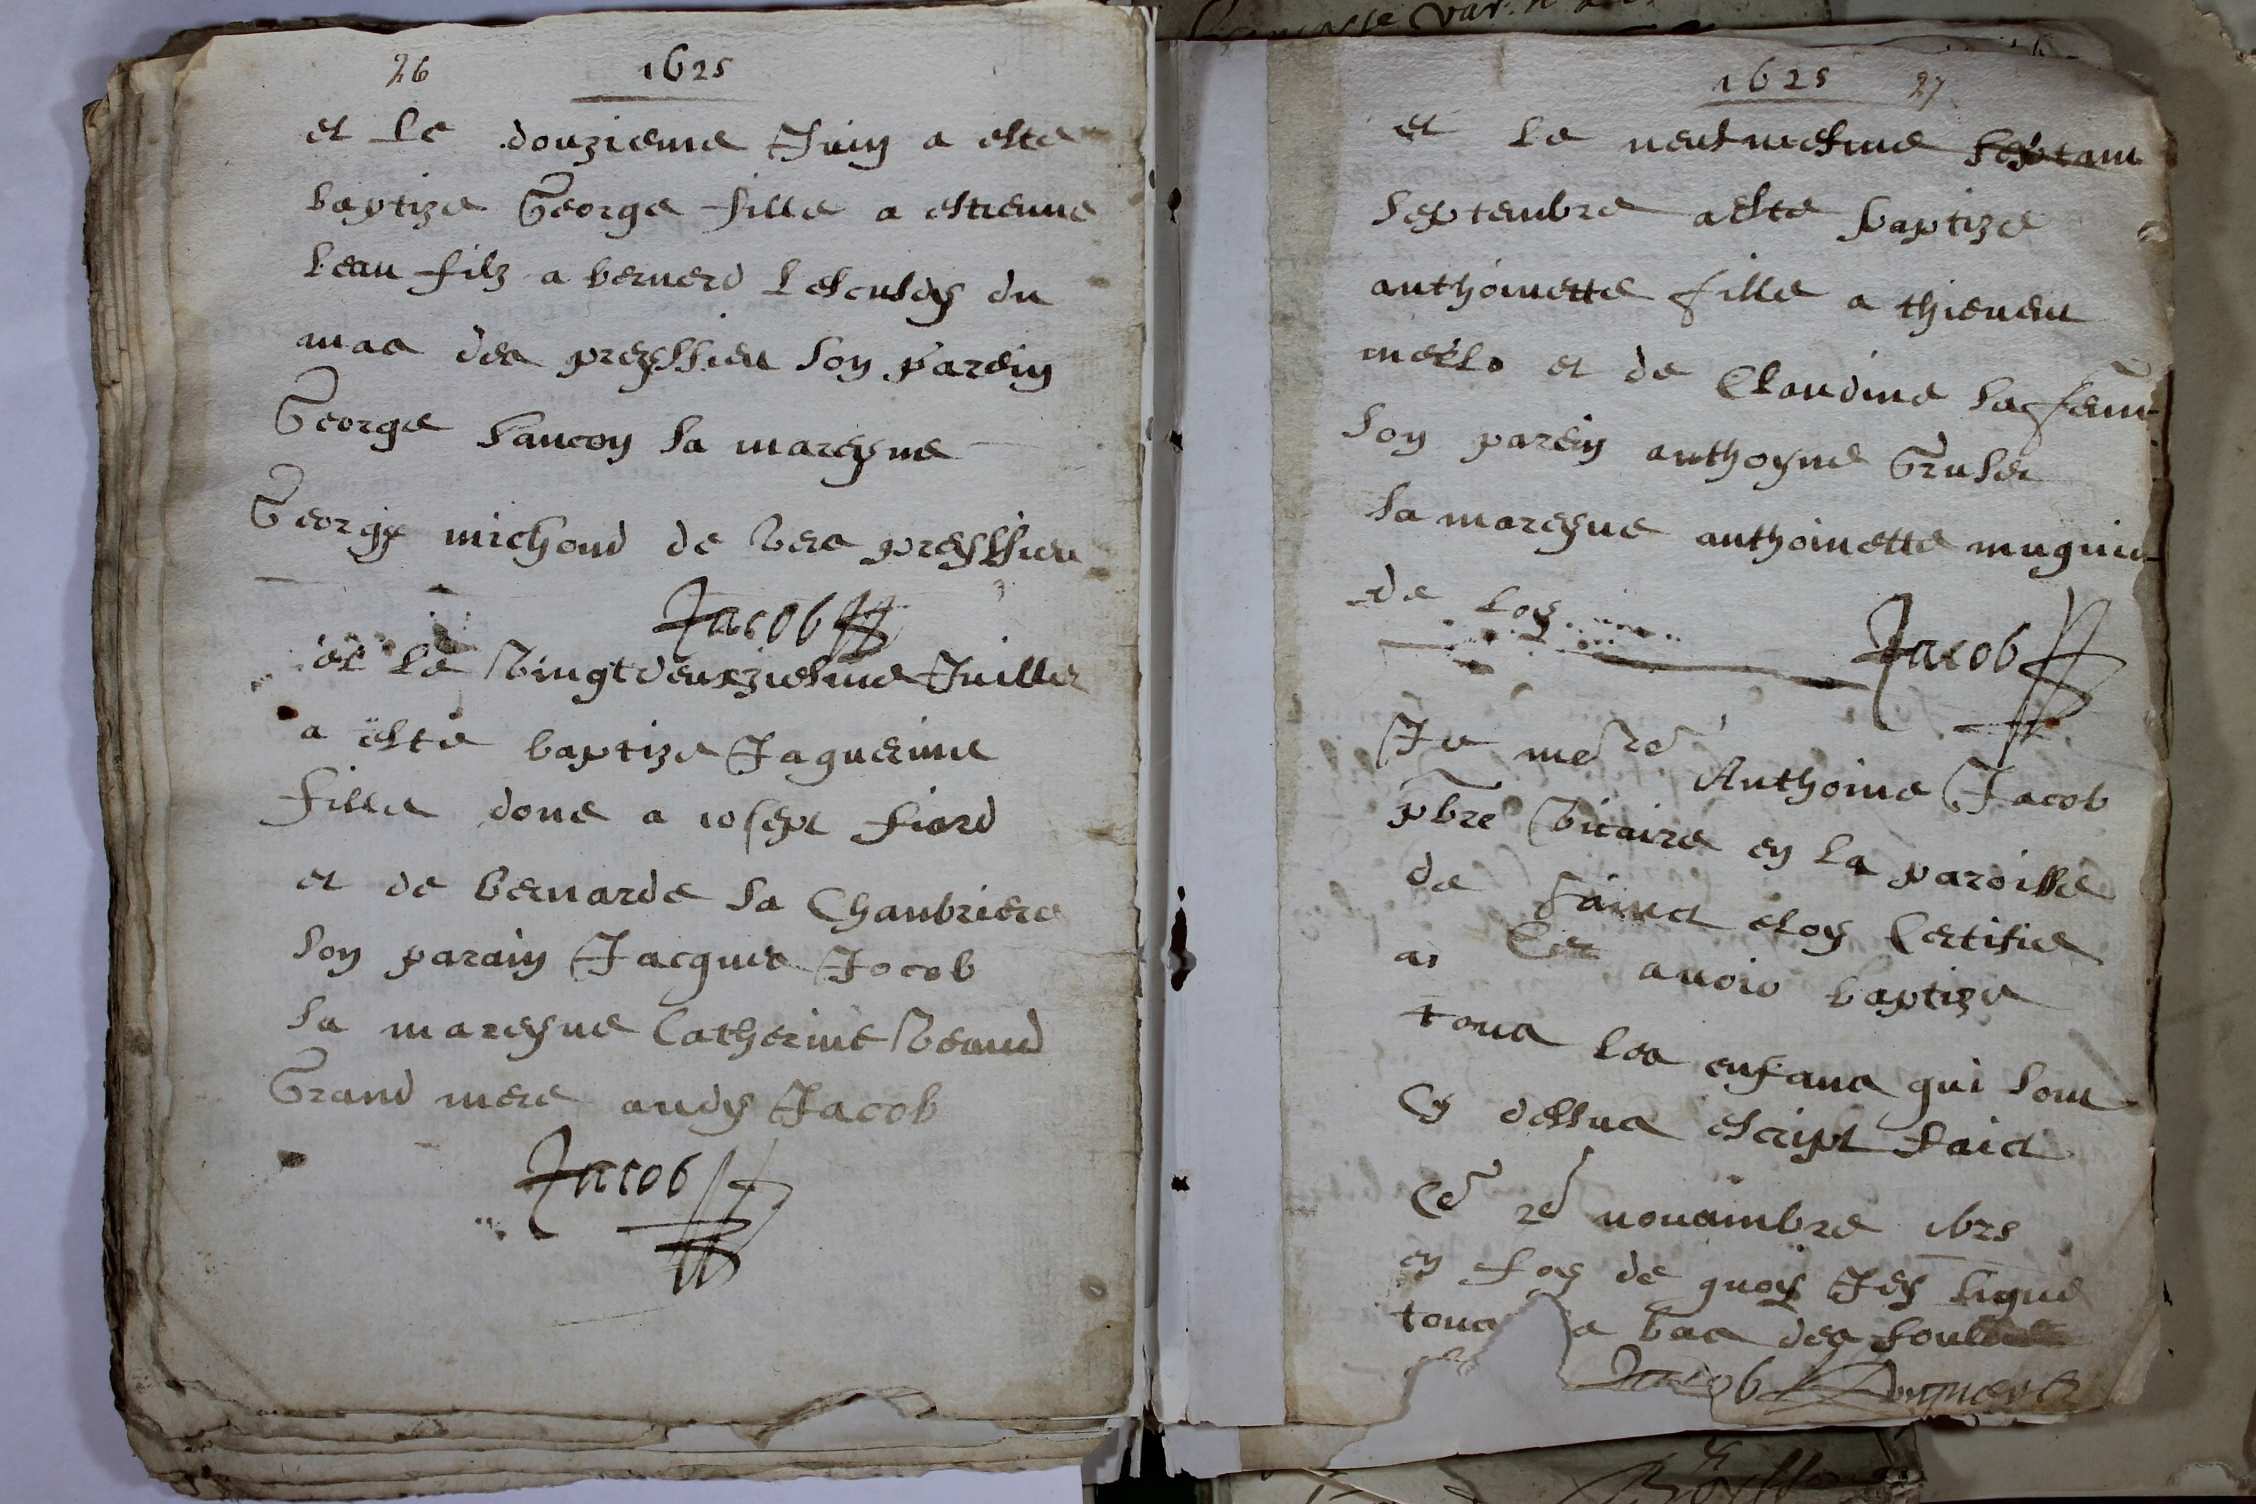 26 1625
et le douzieme Juin a este
baptize George fille a estienne
beau filz a bernerd du
mas des preyssieu son parein
George sa mareyne
George michoud de vers preyssieu
Jacob
et le vingtdeuxziesme Juillet
a este baptize Jaquerine
fille done a iosept fiard
et de bernarde sa Chanbriere
son parain Jacques Jocob
sa mareyne Catherine
Grand mere audy Jacob
Jacob
1625 27
et le neufviesme septam
septembre a este baptize
anthoinette fille a thievent
et de Claudine sa fem
son parein anthoyne
sa mareyne anthoinette
de loy
Jacob
Je Anthoine Jacob
pbre vicaire en la paroisse
de sainct eloy Certifie
avoir baptize
tous les enfans qui sont
Cy dessus escript faict
Ce novambre 1625
en foy de quoy Jey signé
tous a bas des
Jacob